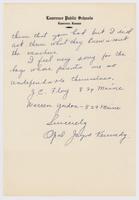 Lawrence Public Schools
Lawrence, Kansas
them that you had but I did
not them what they know about
the machine.
I feel very sorry for the
boys whose parents are so
undependable themselves.
J. C. Floy 824 Maine
Warren Yadon - 829 Maine
Sincerely
Opal Joyce Kennedy